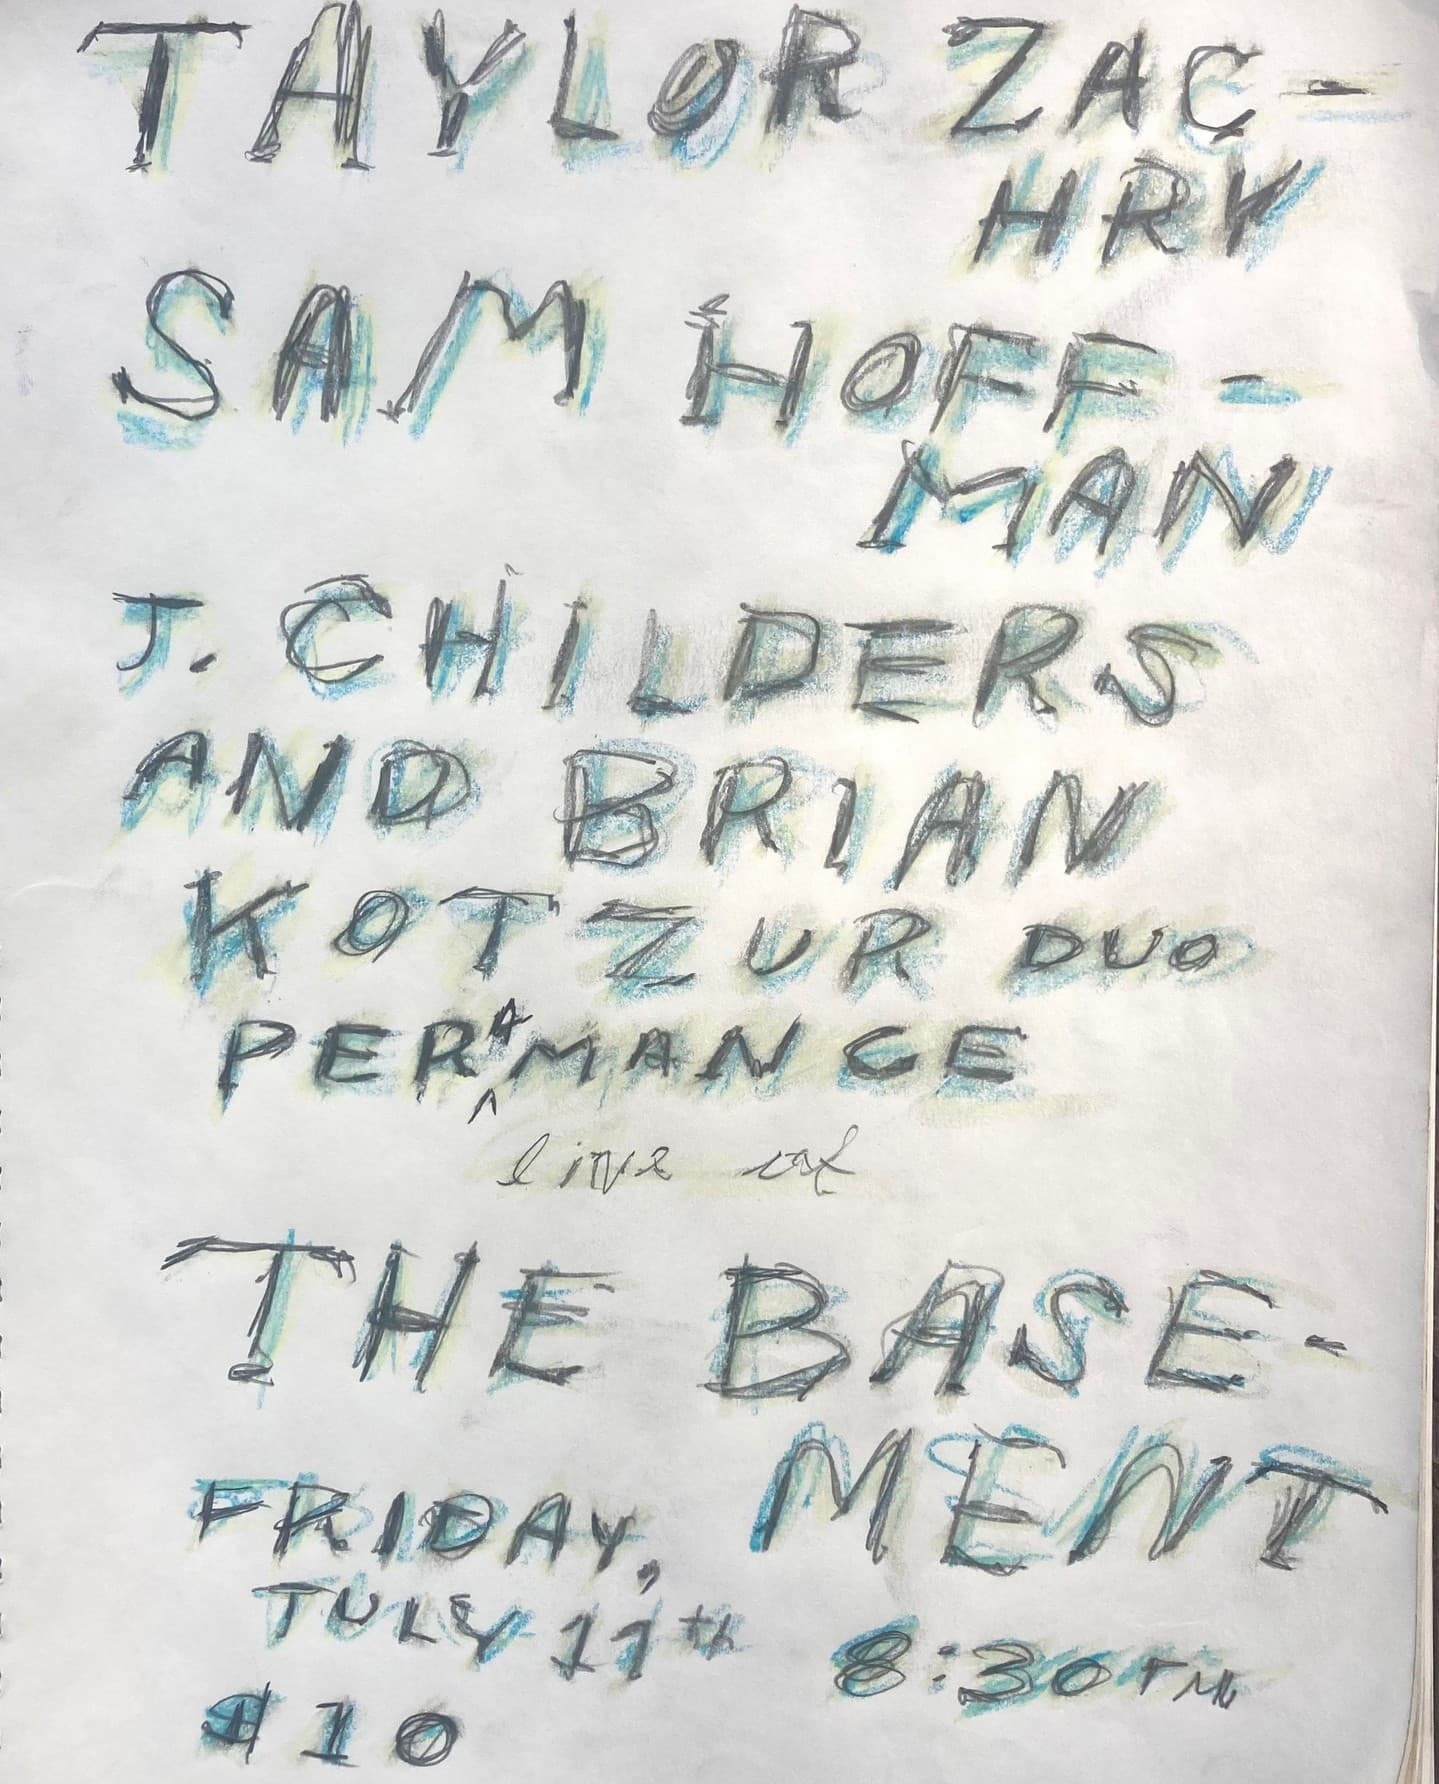 TAYLOR ZAC-
HRY
SAM HOFF-
MAN
J. CHILDERS
AND BRIAN
KOTZUR DUO
PERAMANCE
live at
THE BASE-
MENT
FRIDAY,
JULY 11th 8:30PM
$10